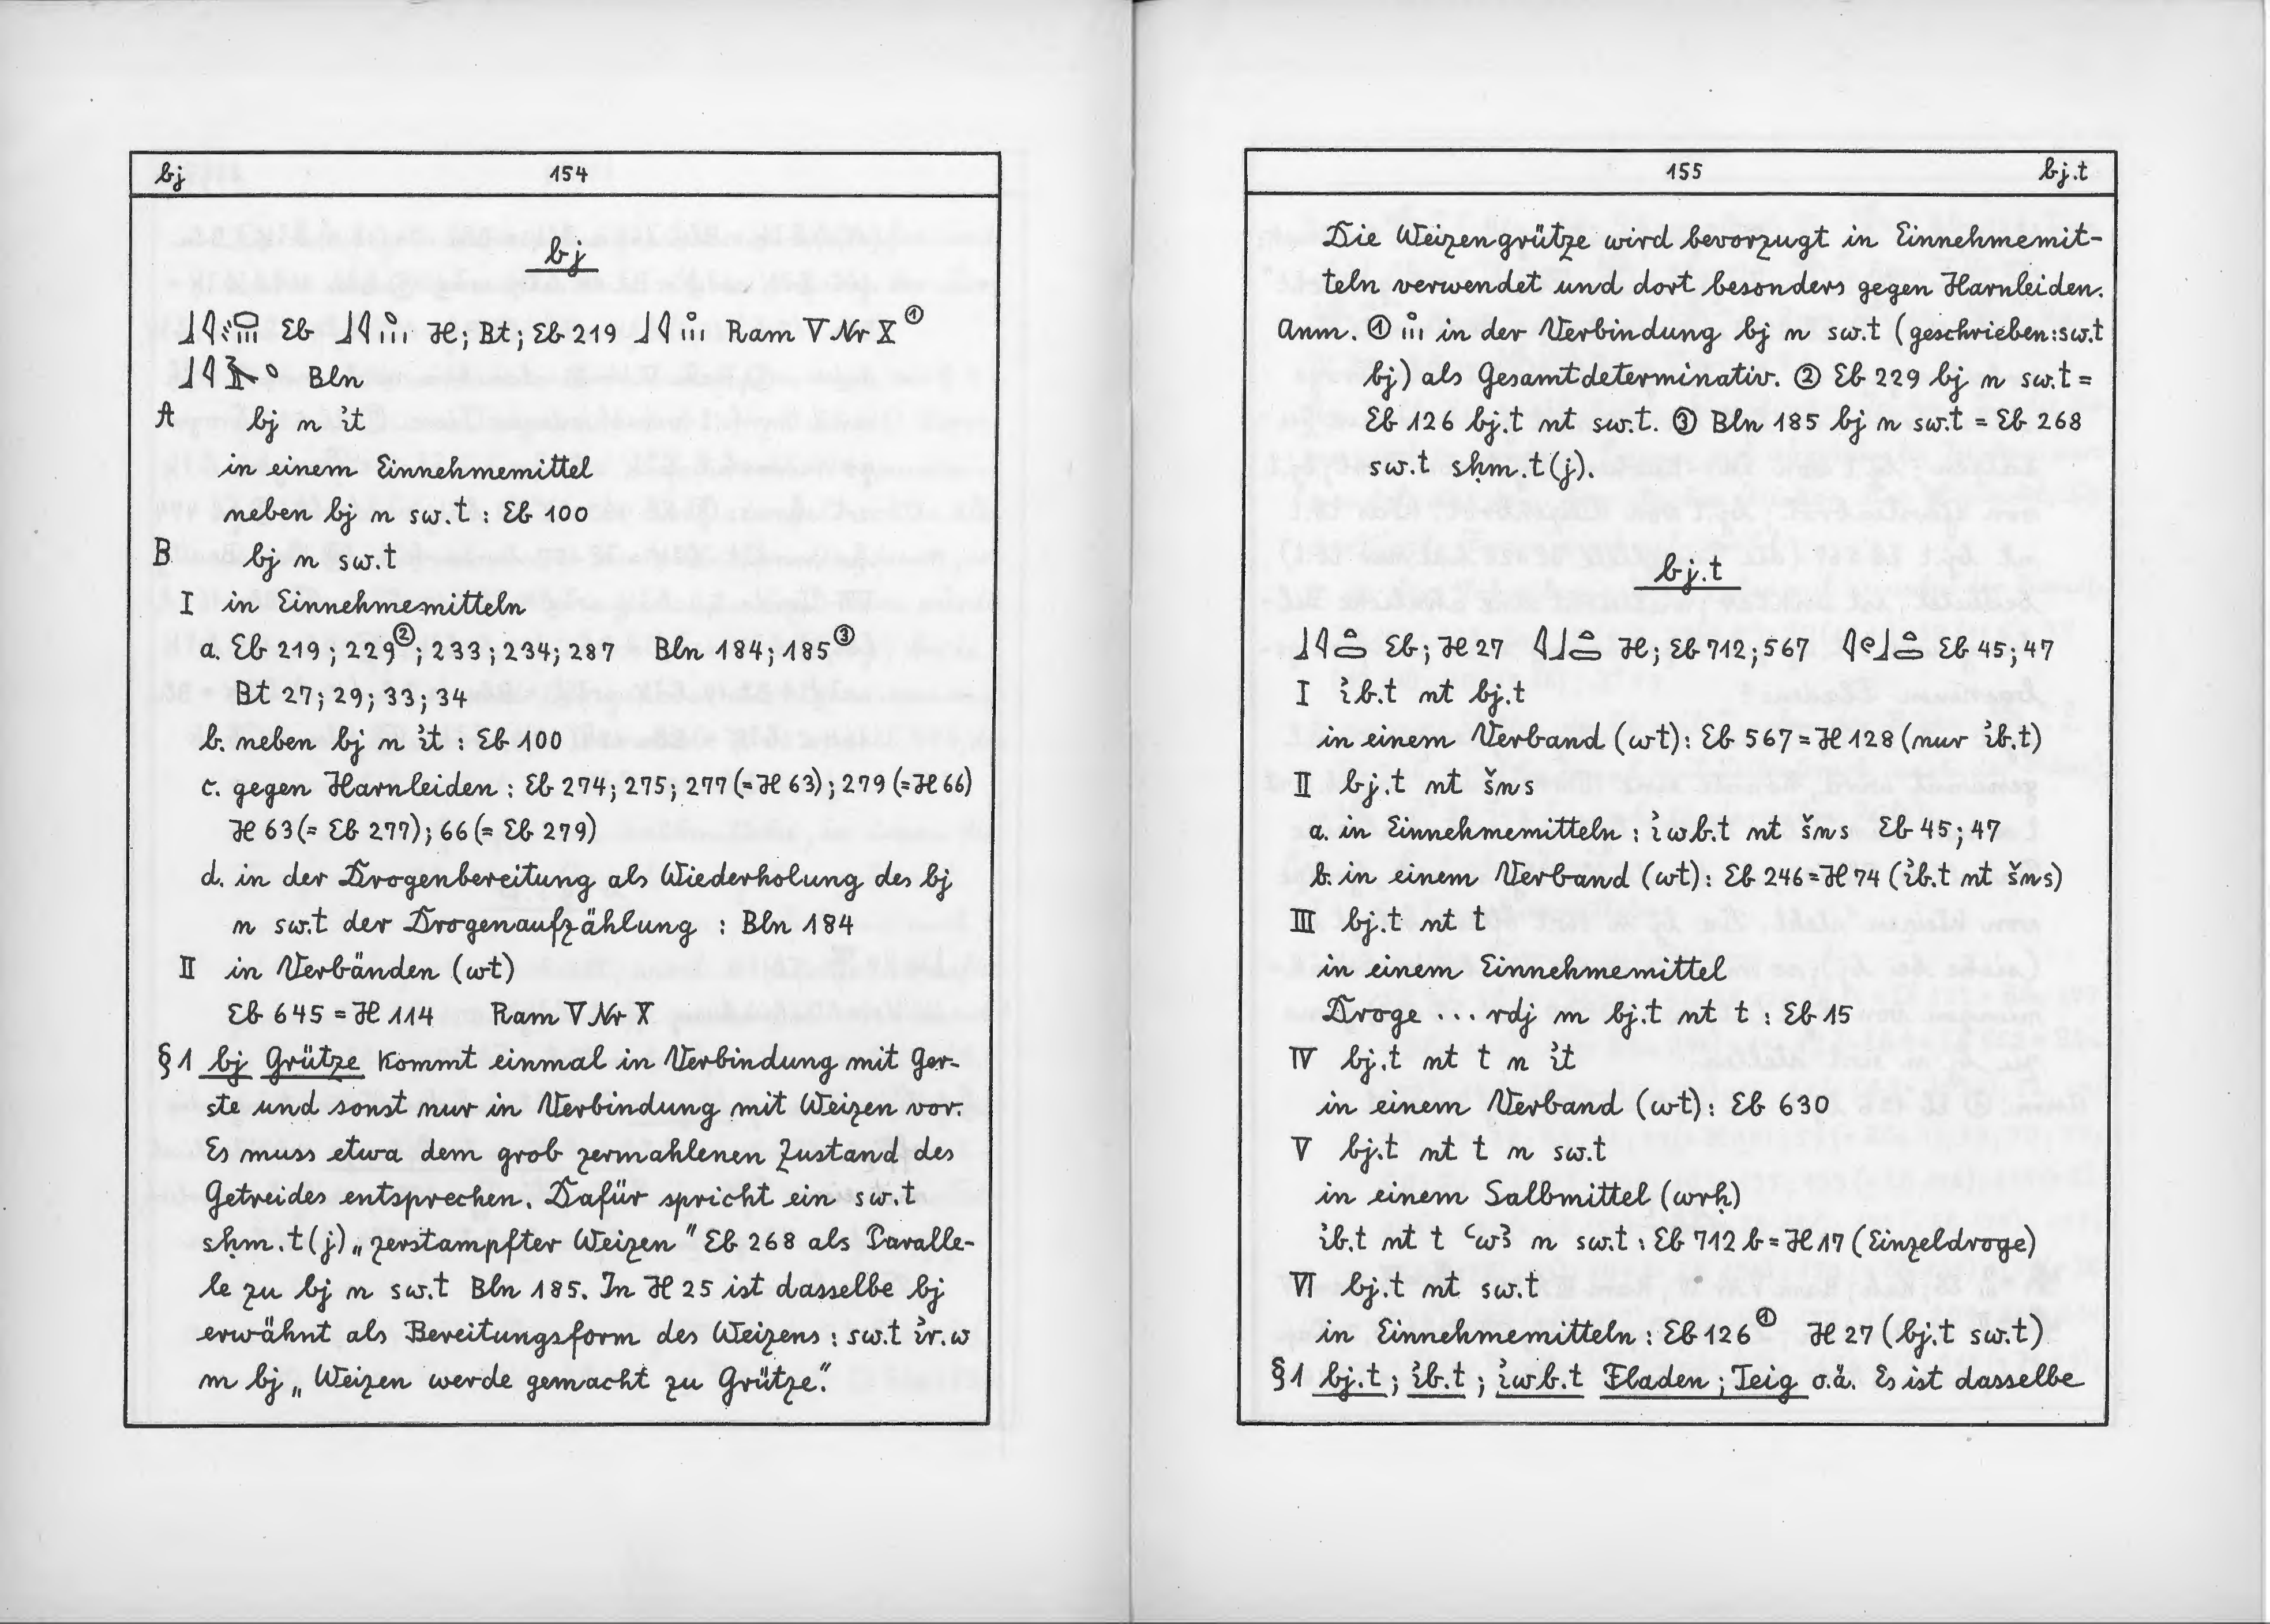 bj 154
bj
Eb H; Bt; Eb 219 Ram V Nr X ①
Bln
A bj n ı͗t
in einem Einnehmemittel
neben bj n sw.t : Eb 100
B bj n sw.t
I in Einnehmemitteln
a. Eb 219; 229②; 233; 234; 287 Bln 184; 185③
Bt 27; 29; 33; 34
b. neben bj n ı͗t : Eb 100
c. gegen Harnleiden : Eb 274; 275; 277 (= H 63); 279 (= H 66)
H 63 (= Eb 277); 66 (= Eb 279)
d. in der Drogenbereitung als Wiederholung des bj
n sw.t der Drogenaufzählung : Bln 184
II in Verbänden (wt)
Eb 645 = H 114 Ram V Nr X
§ 1 bj Grütze kommt einmal in Verbindung mit Ger-
ste und sonst nur in Verbindung mit Weizen vor.
Es muss etwa dem grob zermahlenen Zustand des
Getreides entsprechen. Dafür spricht ein sw.t
sḥm.t(j) „zerstampfter Weizen" Eb 268 als Paralle-
le zu bj n sw.t Bln 185. In H 25 ist dasselbe bj
erwähnt als Bereitungsform des Weizens : sw.t ı͗r.w
m bj „Weizen werde gemacht zu Grütze".
155 bj.t
Die Weizengrütze wird bevorzugt in Einnehmemit-
teln verwendet und dort besonders gegen Harnleiden.
Anm. ① in der Verbindung bj n sw.t (geschrieben: sw.t
bj) als Gesamtdeterminativ. ② Eb 229 bj n sw.t =
Eb 126 bj.t nt sw.t. ③ Bln 185 bj n sw.t = Eb 268
sw.t sḥm.t(j).
bj.t
Eb; H 27 H; Eb 712; 567 Eb 45; 47
I ı͗b.t nt bj.t
in einem Verband (wt): Eb 567 = H 128 (nur ı͗b.t)
II bj.t nt šns
a. in Einnehmemitteln : ı͗wb.t nt šns Eb 45; 47
b. in einem Verband (wt): Eb 246 = H 74 (ı͗b.t nt šns)
III bj.t nt t
in einem Einnehmemittel
Droge ... rdj m bj.t nt t : Eb 15
IV bj.t nt t n ı͗t
in einem Verband (wt): Eb 630
V bj.t nt t n sw.t
in einem Salbmittel (wrḥ)
ı͗b.t nt t ꜥwꜣ n sw.t : Eb 712 b = H 17 (Einzeldroge)
VI bj.t nt sw.t
in Einnehmemitteln : Eb 126① H 27 (bj.t sw.t)
§ 1 bj.t; ı͗b.t; ı͗wb.t Fladen; Teig o.ä. Es ist dasselbe